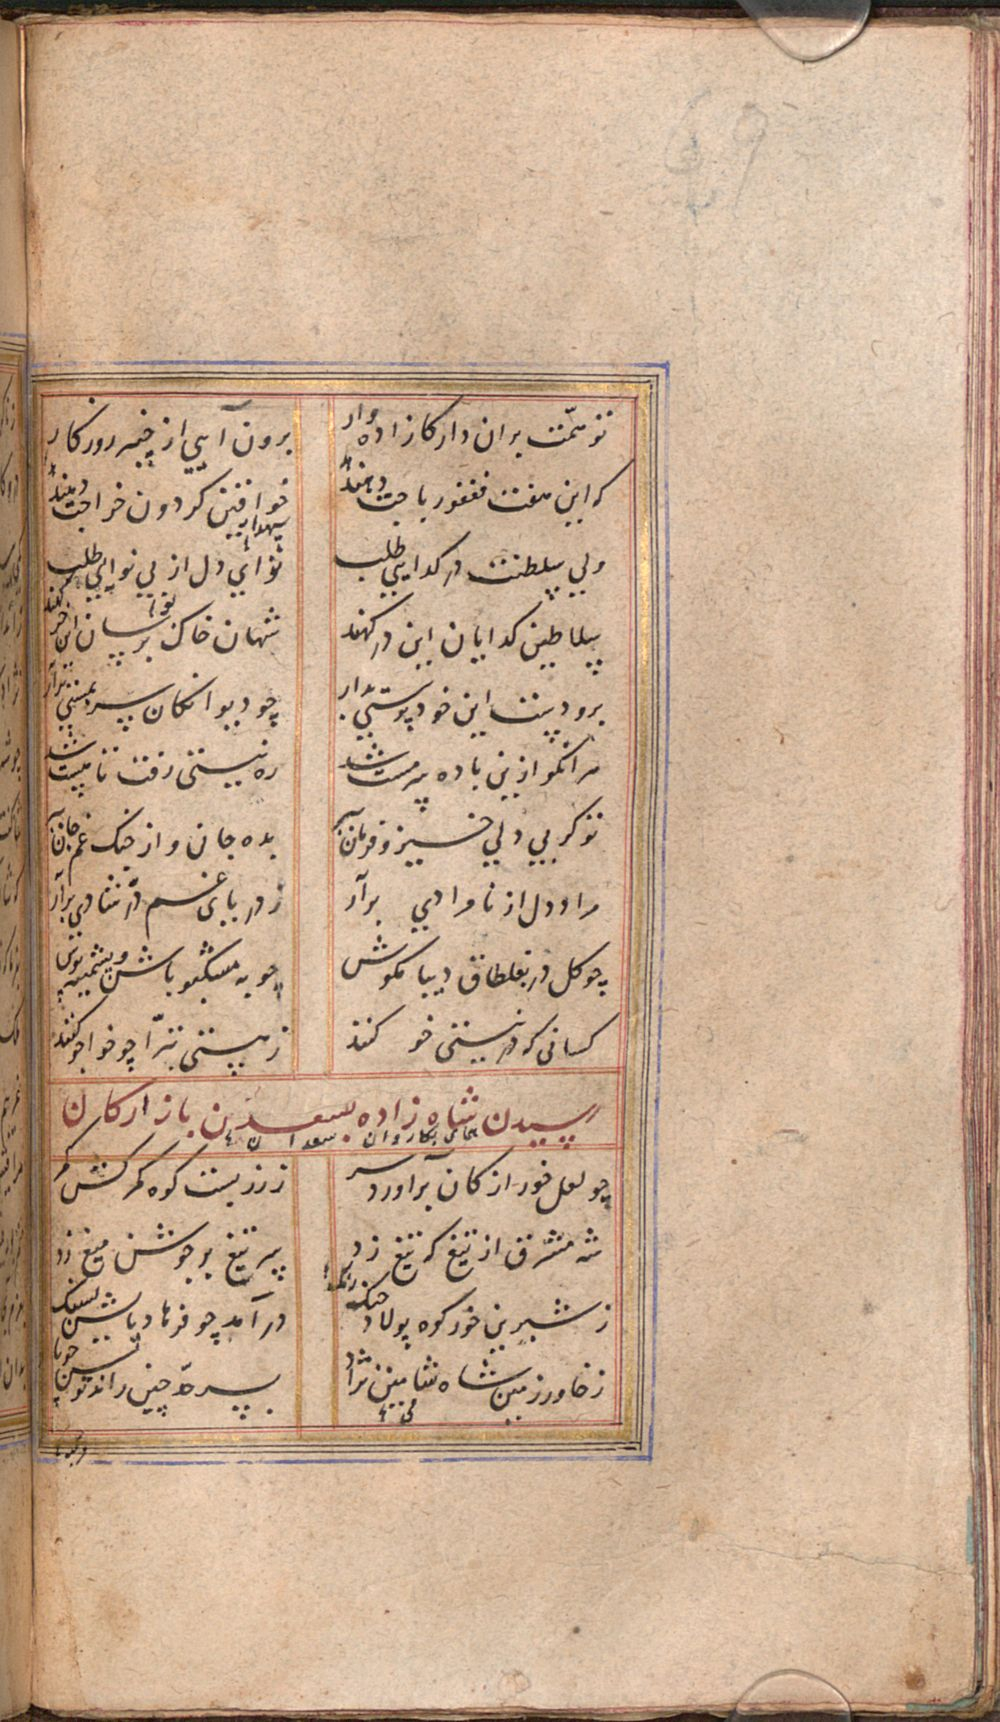 تو همّت بران دار کازاده وار برون آیی از چنبر روزکار
که این هفت فغفور باجت دهند خواقین کردون خراجت دهند
ولی سلطنت در کدایی طلب نوای دل از بی نوایی طلب
سلاطین کدایان این درکهند شهان خاک بوسان این خرکهند
برو دست این خود پرستی بدار چو دیوانکان سر بمستی برآر
مرا نکو ازین باده سرمست شد ره نیستی رفت تا هست شد
تو کر بی دلی خیز و فرمان بده جانی و از چنک غم جان
مراد دل از نامرادی برآر ز دریای غم درّ شادی برآر
چو کل در بغلطاق دیبا مکوش چو به مشکبو باش و پشمینه پوش
کسانی که در نیستی خو کنند ز هستی تبرّا چو خواجو کنند
رسیدن شاه زاده بسعدین بازارکان
چو لعل خور از کان برآورد سر ز زر بست کوه کمرکش کمر
شه مشرق از تیغ که تیغ زد سر تیغ بر جوشن میغ زد
ز شیرین خور کوه پولاد درآمد چو فرهاد باتیشن بسنک
ز خاور زمین شاه شامی نژاد بسرحدّ چین راند توسن چو باد